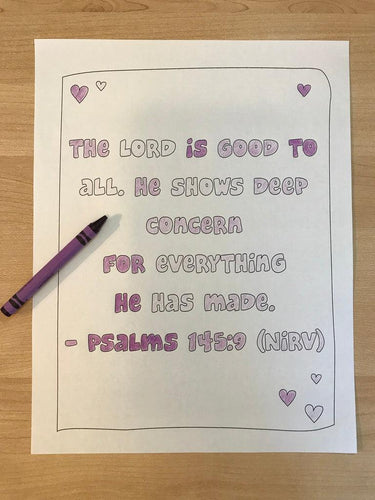 THE LORD iS GOOD TO
aLL. He SHOWS Deep
concern
FOR everyTHinG
He Has made.
- Psalms 145:9 (NiRV)